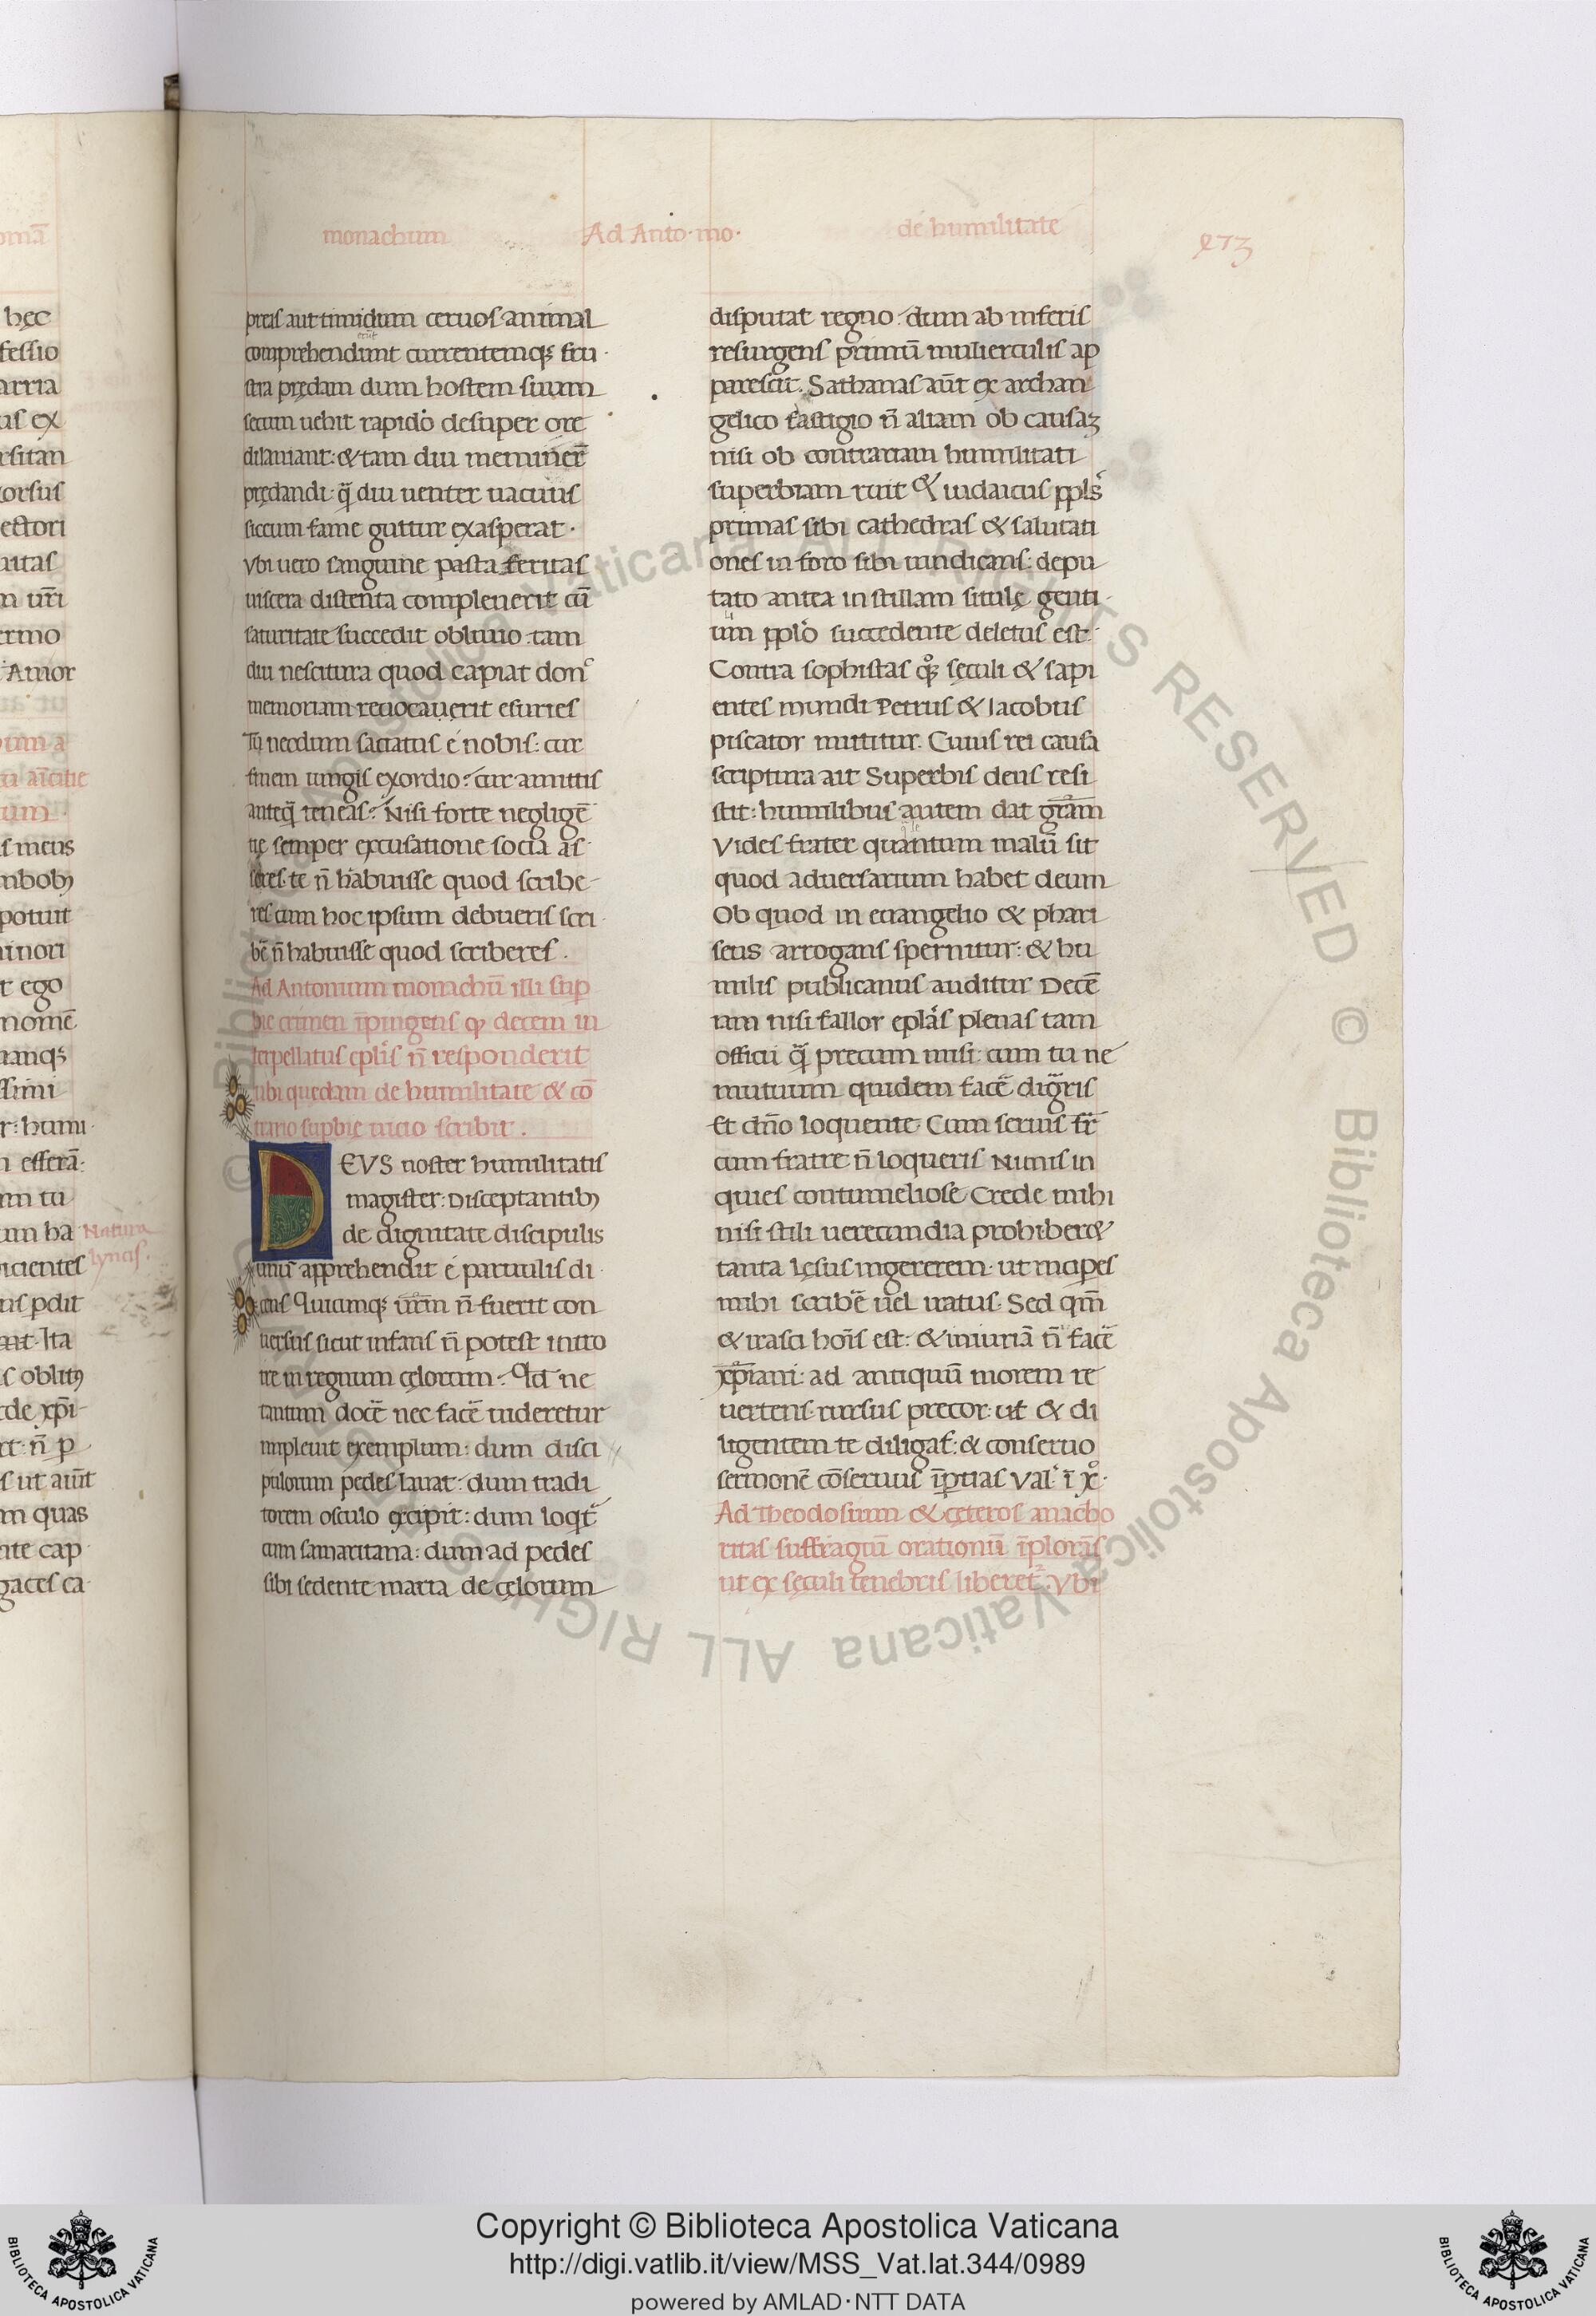 monachum Ad Anto·mo· de humilitate
preis aut timidum ceruos animal
comprehendunt currentemqꝫ fru·
stra prędam dum hostem suum
secum uehit rapido desuper ore
dilaniant: & tam diu meminer̄
prędandi: q̄ diu uenter uacuus
siccum fame guttur exasperat·
Vbi uero sanguine pasta feritas
uiscera distenta compleuerit cū
saturitate succedit obliuio·tam
diu nescitura quod capiat donͨ
memoriam reuocauerit esuries
Tu necdum satiatus é nobis: cur
finem iungis exordio? cur amittis
anteq̄ teneas? Nisi forte negligē
tię semper excusatione socia as·
seres te n̄ habuisse quod scribe-
res cum hoc ipsum debueris scri·
bē n̄ habuisse quod scriberes·
Ad Antonium monachū illi sup
bie crimen īpingens ꝙ decem in
terpellatus epl̄is n̄ responderit
ubi quedam de humilitate & cō
trario supbię uicio scribit.
DEVS noster humilitatis
magister: Disceptantibꝯ
de dignitate discipulis
unū apprehendit é paruulis di·
cens Quicumqꝫ ur̄m n̄ fuerit con
uersus sicut infans n̄ potest intro
ire in regnum cęlorum: Id ne
tantum docē nec facē uideretur
impleuit exemplum: dum disci
pulorum pedes lauat: dum tradi
torem osculo excipit: dum loqt̄
cum samaritana: dum ad pedes
sibi sedente maria de cęlorum
disputat regno: dum ab inferis
resurgens primū mulierculis ap
parescit. Sathanas aūt ex archan
gelico fastigio n̄ aliam ob causaꝫ
nisi ob contrariam humilitati
superbiam ruit & iudaicus ppl̄s
primas sibi cathedras & salutati
ones in foro sibi uindicans: depu
tato antea in stillam situlę genti·
um ppl̄o succedente deletus est·
Contra sophistas qꝫ sęculi & sapi
entes mundi Petrus & Iacobus
piscator mittitur. Cuius rei causa
scriptura ait Superbis deus resi
stit: humilibus autem dat gr̄am
Vides frater quantum malū sit
quod aduersarium habet deum
Ob quod in euangelio & phari
seus arrogans spernitur: & hu
milis publicanus auditur Decē
iam nisi fallor epl̄as plenas tam
officii q̄ precum misi: cum tu ne
mutuum quidem facē digr̄is
Et dn̄o loquente Cum seruis fr̄
cum fratre n̄ loqueris Nimis in
quies contumeliose Crede mihi
nisi stili uerecundia prohiber&
tanta lęsus ingererem· ut inciꝑes
mihi scribē uel iratus· Sed qm̄
& irasci hoīs est: & iniuriā n̄ facē
xp̄iani: ad antiquū morem re
uertens rursus precor: ut & di
ligentem te diligas: & conseruo
sermonē cōseruus īꝑtias Val̄ ī xͦ·
Ad Theodosium & cęteros anacho
ritas suffragiū orationū īplorans
ut ex sęculi tenebris liberet̄·Vbi
Copyright © Biblioteca Apostolica Vaticana
http://digi.vatlib.it/view/MSS_Vat.lat.344/0989
powered by AMLAD·NTT DATA